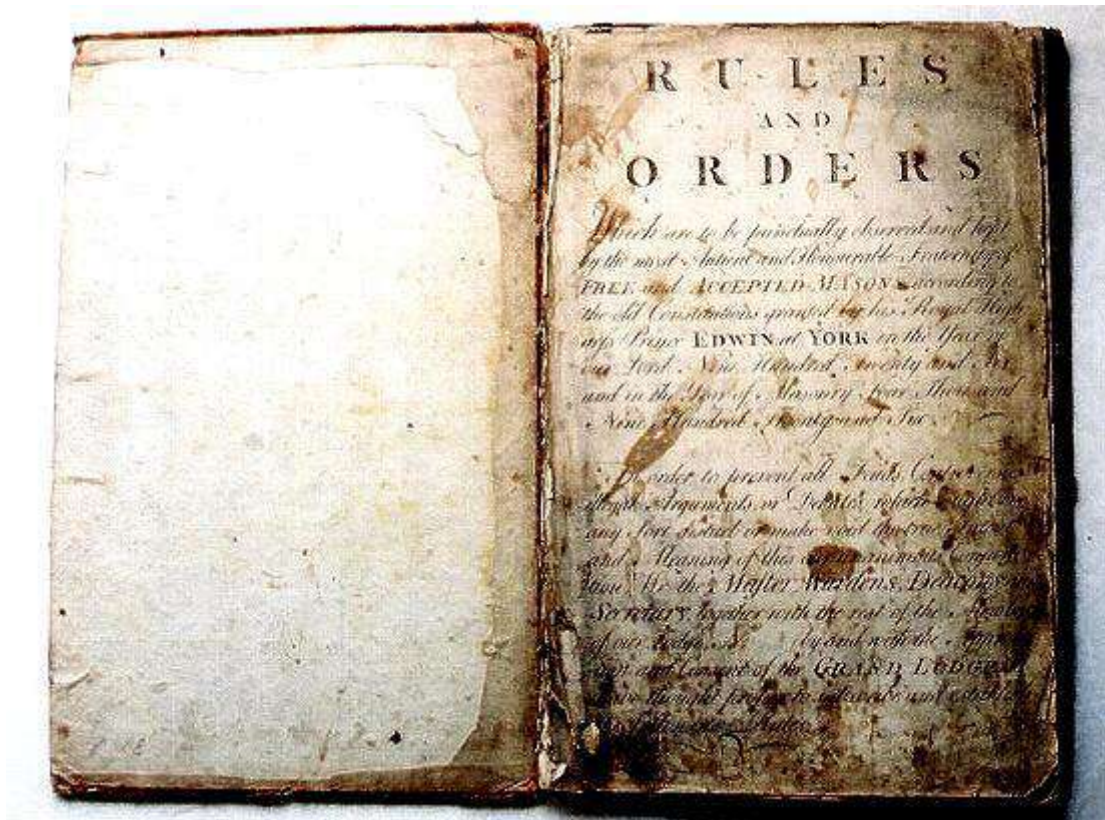 RULES
AND
ORDERS
Which are to be punctually observed and kept
by the most Antient and Honourable Fraternity of
FREE and ACCEPTED MASONS according to
the old Constitutions granted by his Royal High
Prince EDWIN at YORK in the Year of
our Lord Nine Hundred Twenty and Six
and in the Year of Masonry Four Thousand
Nine Hundred Twenty and Six
order to prevent all Feuds
Arguments or Debates which
any sort disturb or make void the true
and Meaning of this
We the Master Wardens
Secretary together with the rest of the
of our Lodge by and with the
and Consent of the GRAND LODGE
thought proper to